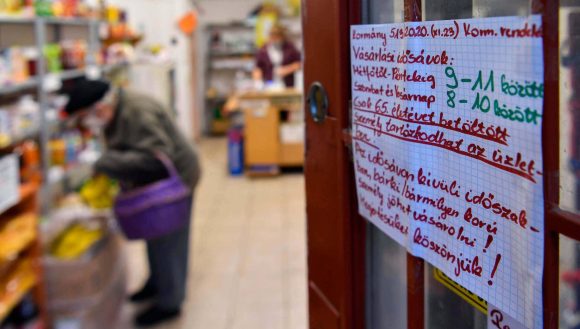 Kormány 513/2020. (XI.23) Korm. rendelet
Vásárlási idősávok:
Hétfőtől-Péntekig 9-11 között
Szombat és vasárnap 8-10 között
Csak 65. életévét betöltött
személy tartózkodhat az üzlet-
ben!
Az idősávon kívüli időszak-
ban, bárki/bármilyen korú
személy jöhet vásárolni!
Megértésüket köszönjük!